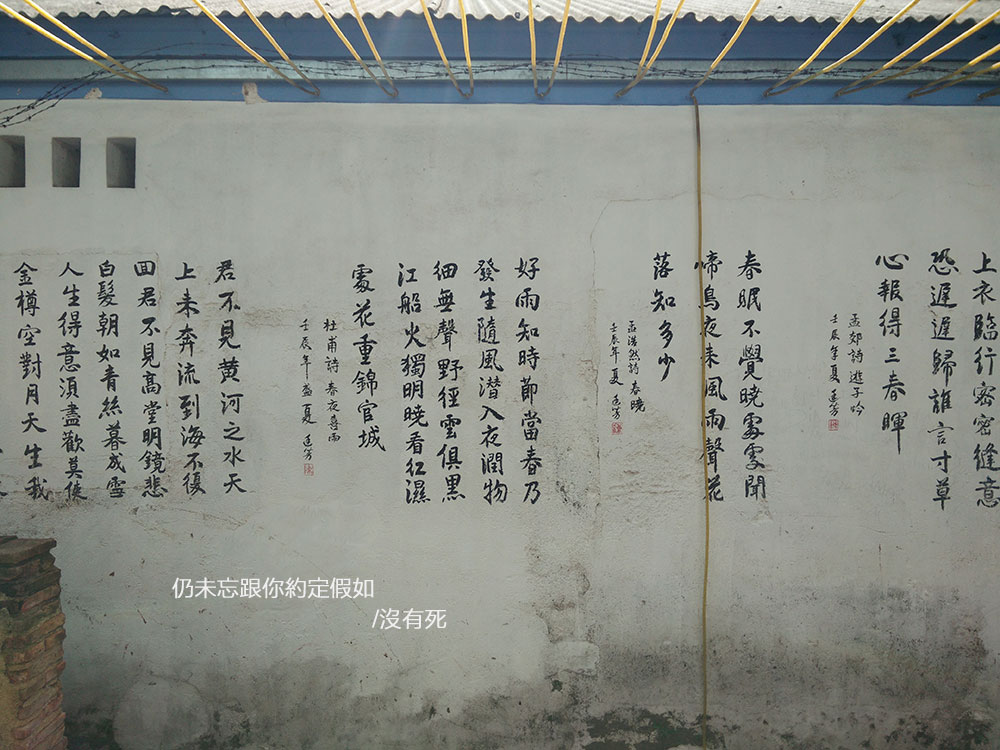 上衣臨行密密縫意
恐遲遲歸誰言寸草
心報得三春暉
孟郊詩 遊子吟
壬辰年夏
春眠不覺曉處處聞
啼鳥夜来風雨聲花
落知多少
孟浩然詩 春曉
壬辰年夏
好雨知時節當春乃
發生隨風潜入夜潤物
細無聲野徑雲俱黑
江船火獨明曉看红濕
處花重錦官城
杜甫詩 春夜喜雨
壬辰年盛夏
君不見黄河之水天
上来奔流到海不復
囬君不見高堂明鏡悲
白髮朝如青絲暮成雪
人生得意湏盡歡莫使
金樽空對月天生我
仍未忘跟你約定假如
/沒有死